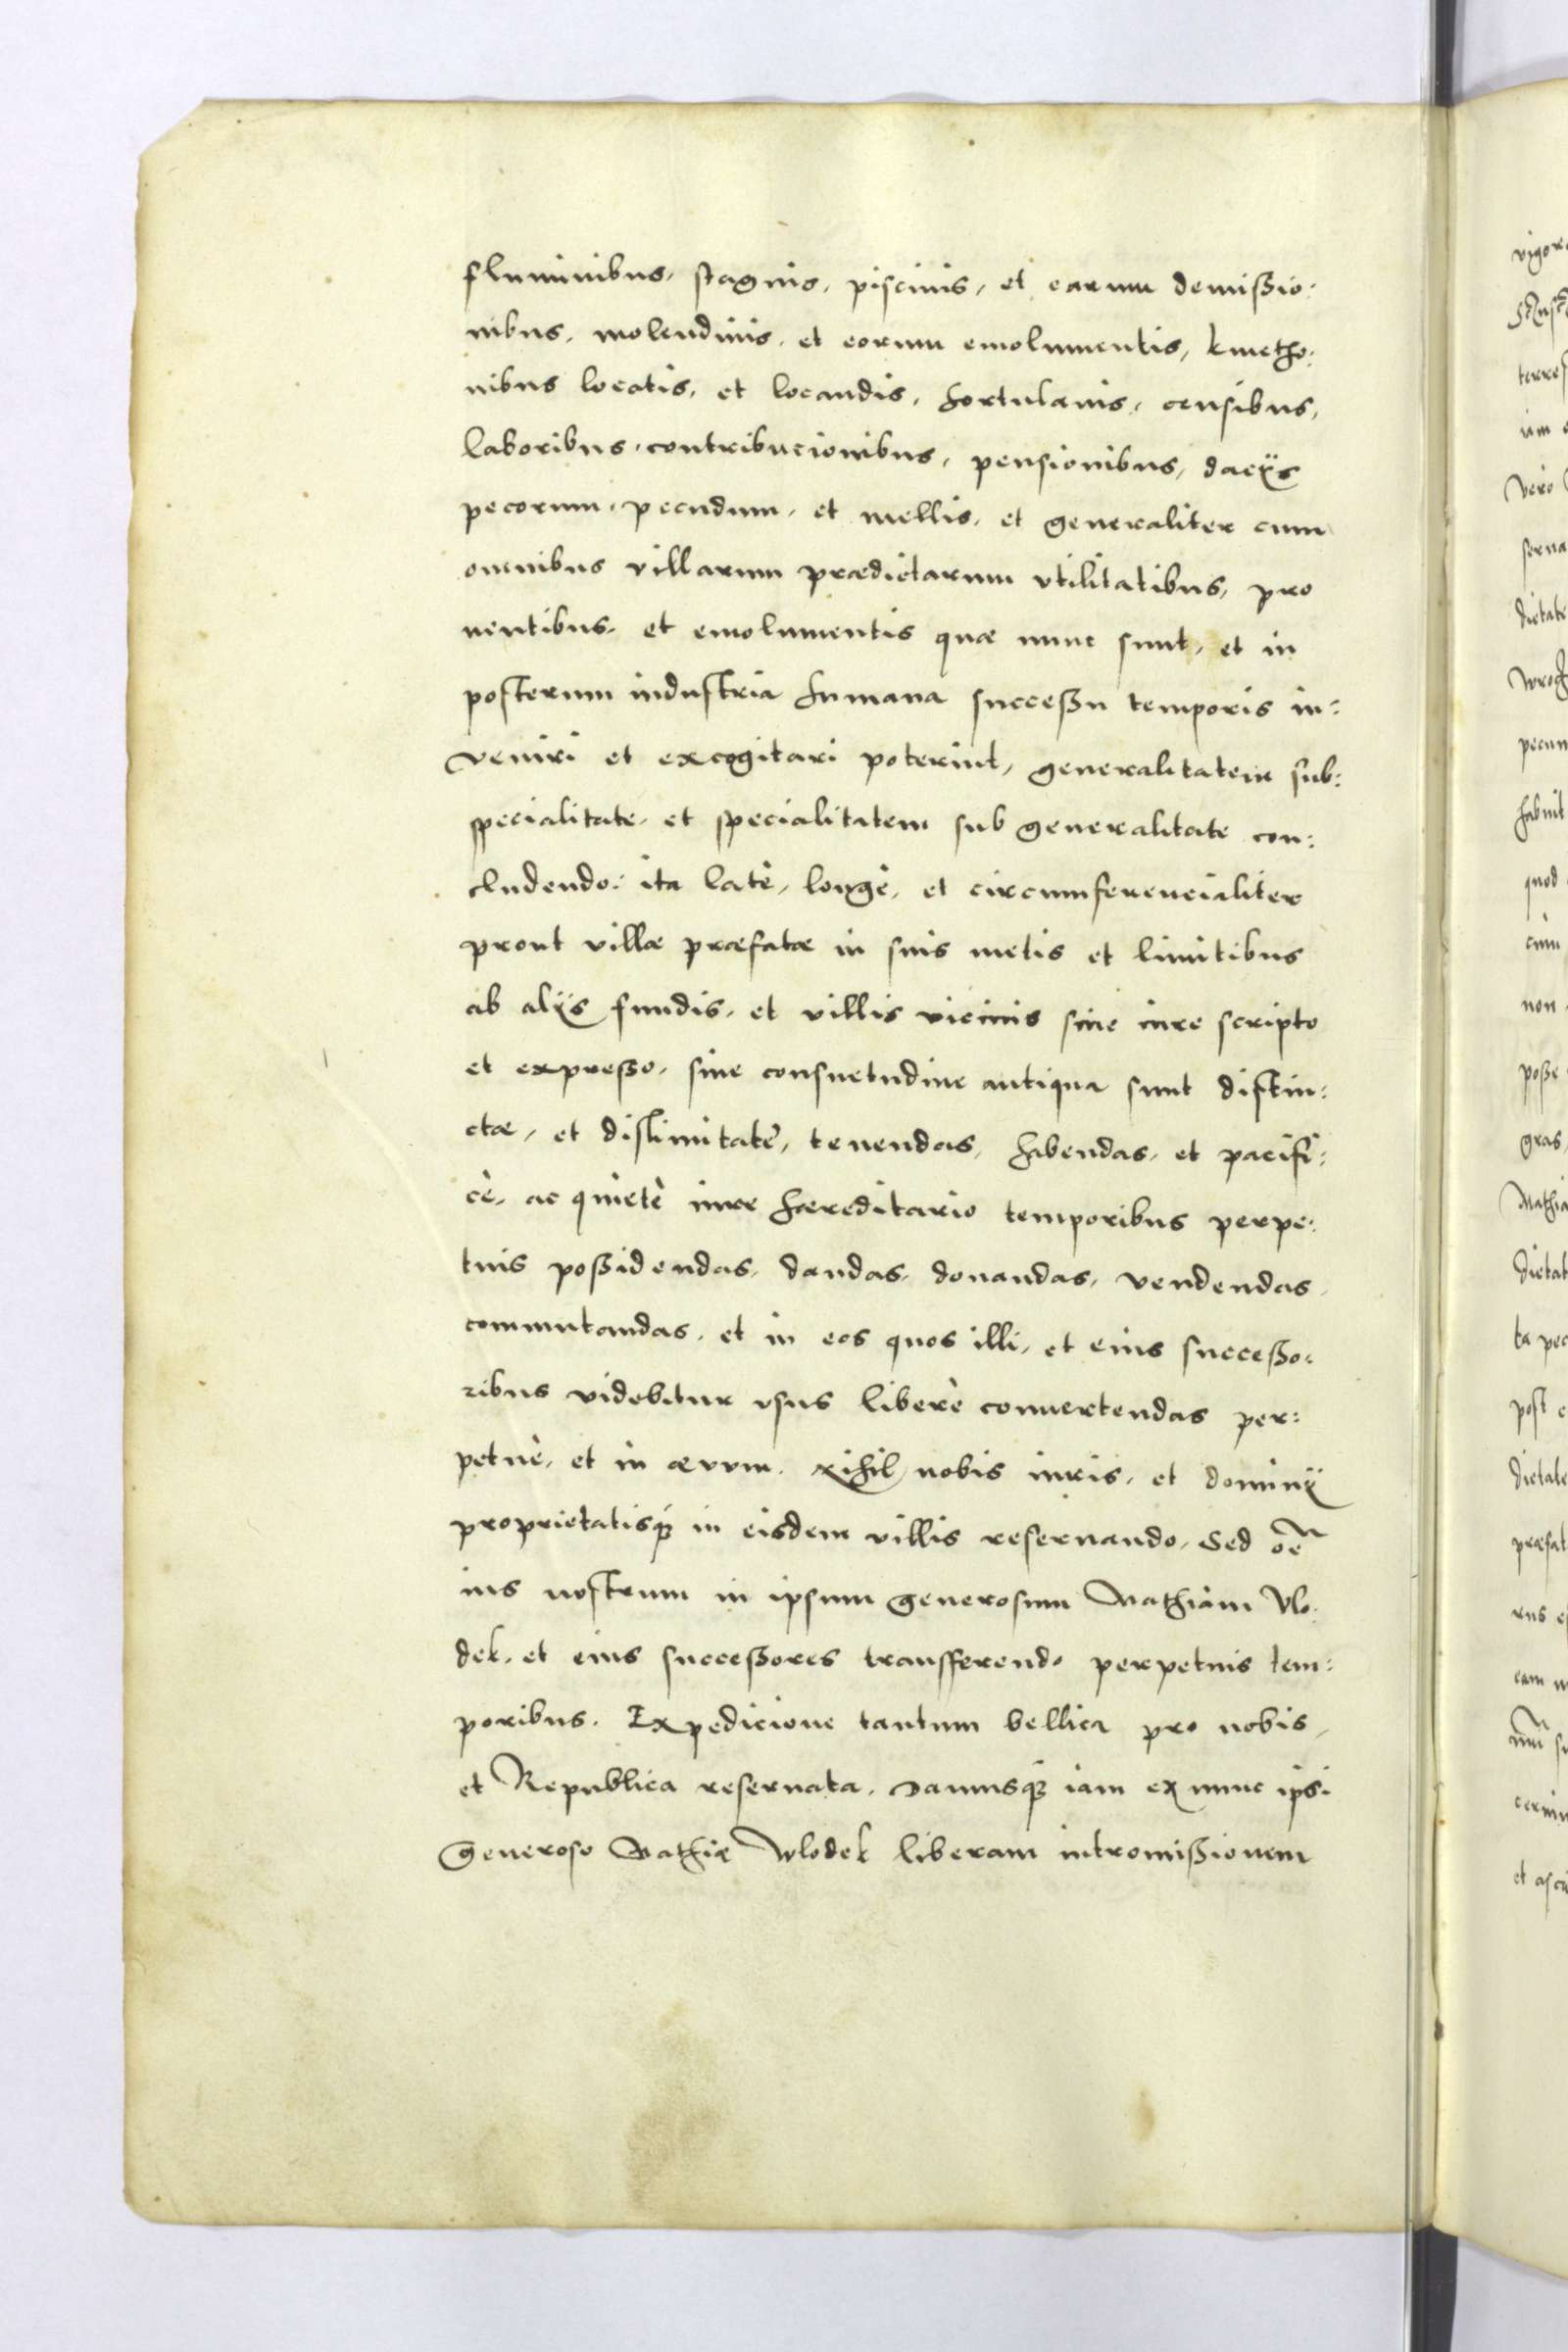 fluminibus, stagnis, piscinis, et earum demißio:
nibus, molendinis, et eorum emolumentis, kmetho:
nibus locatis, et locandis, hortulanis, censibus,
laboribus, contribucionibus, pensionibus, dacijs
pecorum, pecudum, et mellis, et generaliter cum
omnibus villarum prædictarum vtilitatibus, pro
uentibus, et emolumentis quæ nunc sunt, et in
posterum industria humana succeßu temporis in:
veniri et excogitari poterint, generalitatem sub:
specialitate, et specialitatem sub generalitate con:
cludendo: ita latè, longè, et circumferencialiter
prout villæ præfatæ in suis metis et limitibus
ab alijs fundis, et villis vicinis siue iure scripto
et expreßo, siue consuetudine antiqua sunt distin:
ctæ, et dislimitatę, tenendas, habendas, et pacifi:
cè, ac quietè iure hæreditario temporibus perpe:
tuis poßidendas, dandas, donandas, vendendas,
commutandas, et in eos quos illi, et eius succeßo:
ribus videbitur vsus liberè conuertendas per:
petuè, et in ævum. Nihil nobis iuris, et dominij
proprietatisq₃ in eisdem villis reseruando, Sed oẽ
ius nostrum in ipsum generosum Mathiam Vlo:
dek, et eius succeßores transfferendo perpetuis tem:
poribus. Expedicione tantum bellica pro nobis,
et Republica reseruata. Damusq₃ iam ex nunc ipsi
Generoso Mathiæ Wlodek liberam intromißionem